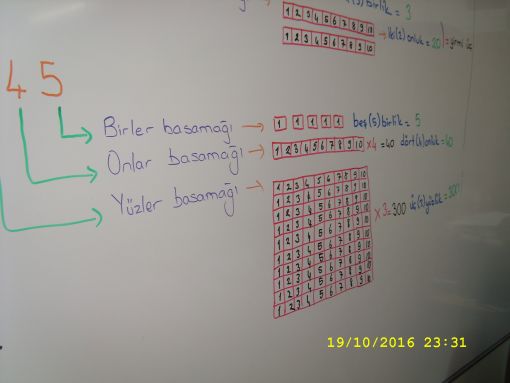 birlik = 3
1 2 3 4 5 6 7 8 9 10
1 2 3 4 5 6 7 8 9 10 → iki(2) onluk = 20 = yirmi üç
4 5
Birler basamağı → 1 1 1 1 1 beş(5)birlik = 5
Onlar basamağı → 1 2 3 4 5 6 7 8 9 10 x4 = 40 dört(4)onluk = 40
Yüzler basamağı →
1 2 3 4 5 6 7 8 9 10
1 2 3 4 5 6 7 8 9 10
1 2 3 4 5 6 7 8 9 10
1 2 3 4 5 6 7 8 9 10
1 2 3 4 5 6 7 8 9 10 x 3 = 300 üç(3)yüzlük = 300
1 2 3 4 5 6 7 8 9 10
1 2 3 4 5 6 7 8 9 10
1 2 3 4 5 6 7 8 9 10
1 2 3 4 5 6 7 8 9 10
1 2 3 4 5 6 7 8 9 10
19/10/2016 23:31